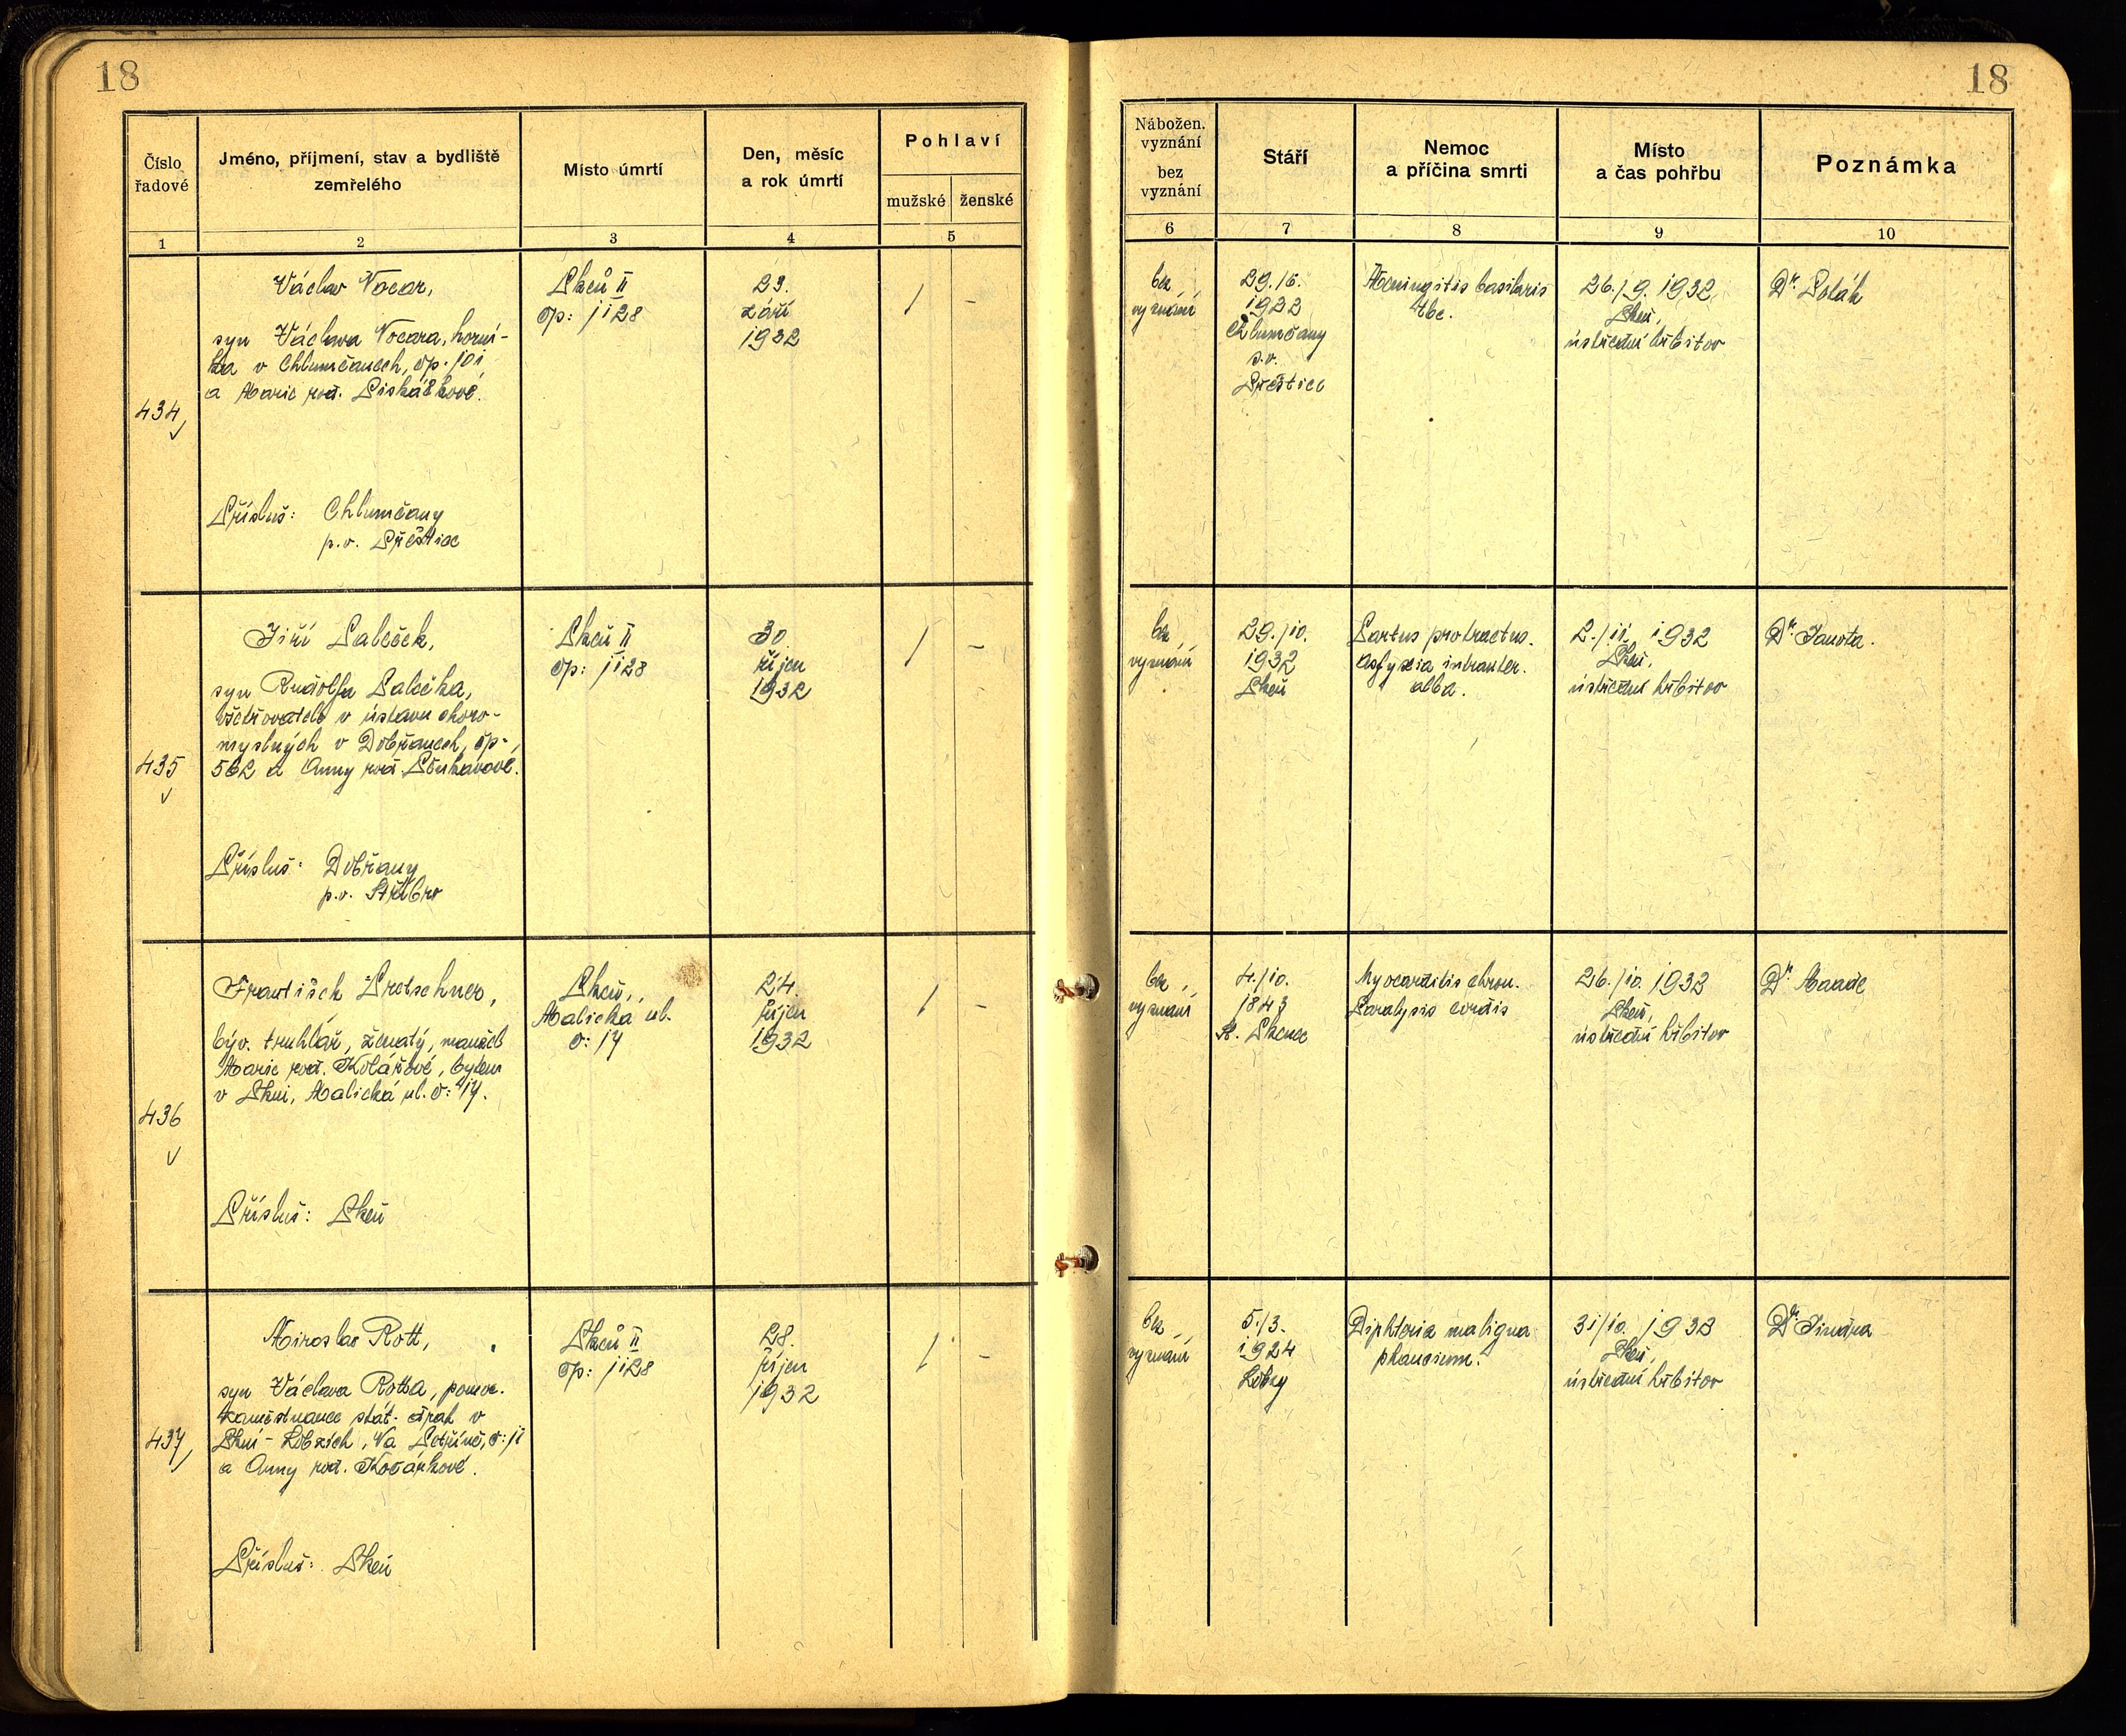 18
18
Číslo
řadové
Jméno, příjmení, stav a bydliště
zemřelého
Místo úmrtí
Den, měsíc
a rok úmrtí
Pohlaví
mužské
ženské
Nábožen.
vyznání
bez
vyznání
Stáří
Nemoc
a příčina smrti
Místo
a čas pohřbu
Poznámka
1
2
3
4
5
6
7
8
9
10
434
Václav Nocar,
syn Václava Nocara, horní-
ka v Chlumčanech, čp. 101
a Marie roz.
Přísluš: Chlumčany
p.o. Přeštice
Plzeň II
čp: 1128
23.
září
1932
/
-
bez
vyznání
29./6.
1922
Chlumčany
p.o.
Přeštice
Meningitis basilaris
tbc.
26./9. 1932
Plzeň,
ústřední hřbitov
Dr.
435
Jiří Paleček,
syn Rudolfa Palečka,
ošetřovatele v ústavu choro-
myslných v Dobřanech, čp.
562 a Anny roz.
Přísluš: Dobřany
p.o. Stříbro
Plzeň II
čp: 1128
30.
říjen
1932
/
-
bez
vyznání
29./10.
1932
Plzeň
Partus protractus.
Asfyxia intrauter.
alba.
2./11. 1932
Plzeň,
ústřední hřbitov
Dr. Janota.
436
František Pretschner,
býv. truhlář, ženatý, manžel
Marie roz. Kolářové, bytem
v Plzni, Malická ul. č: 17.
Přísluš: Plzeň
Plzeň,
Malická ul.
č: 17
24.
říjen
1932
/
-
bez
vyznání
4./10.
1843
St. Plzenec
Myocarditis chron.
Paralysis cordis
26./10. 1932
Plzeň,
ústřední hřbitov
Dr. Maade
437
Miroslav Rott,
syn Václava Rotta, pomoc.
zaměstnance stát. drah v
Plzni-Lobzích, Na Petříně, č: 11
a Anny roz. Kočárkové.
Přísluš: Plzeň
Plzeň II
čp: 1128
28.
říjen
1932
/
-
bez
vyznání
5./3.
1924
Lobzy
Diphteria maligna
31/10. 1932
Plzeň,
ústřední hřbitov
Dr.